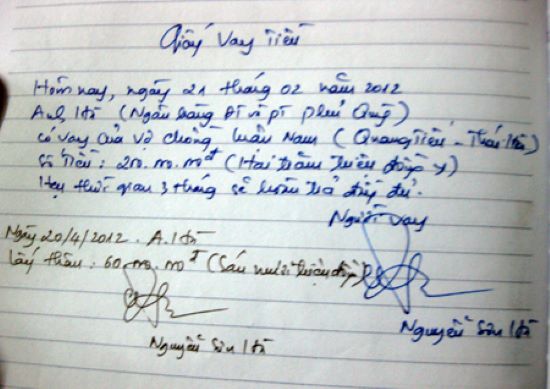 Giấy Vay Tiền
Hôm nay, ngày 21 tháng 02 năm 2012
Anh Hà (Ngân hàng Phủ Quỳ)
có vay của vợ chồng Nam (Quang Tiến - Thái Hòa)
Số tiền: 200.000.000đ (Hai trăm triệu đồng)
Hẹn thời gian 3 tháng sẽ hoàn trả đầy đủ.
Người vay
Ngày 20/4/2012. A. Hà
lấy thêm: 60.000.000đ (Sáu mươi triệu đồng)
Nguyễn Sơn Hà
Nguyễn Sơn Hà